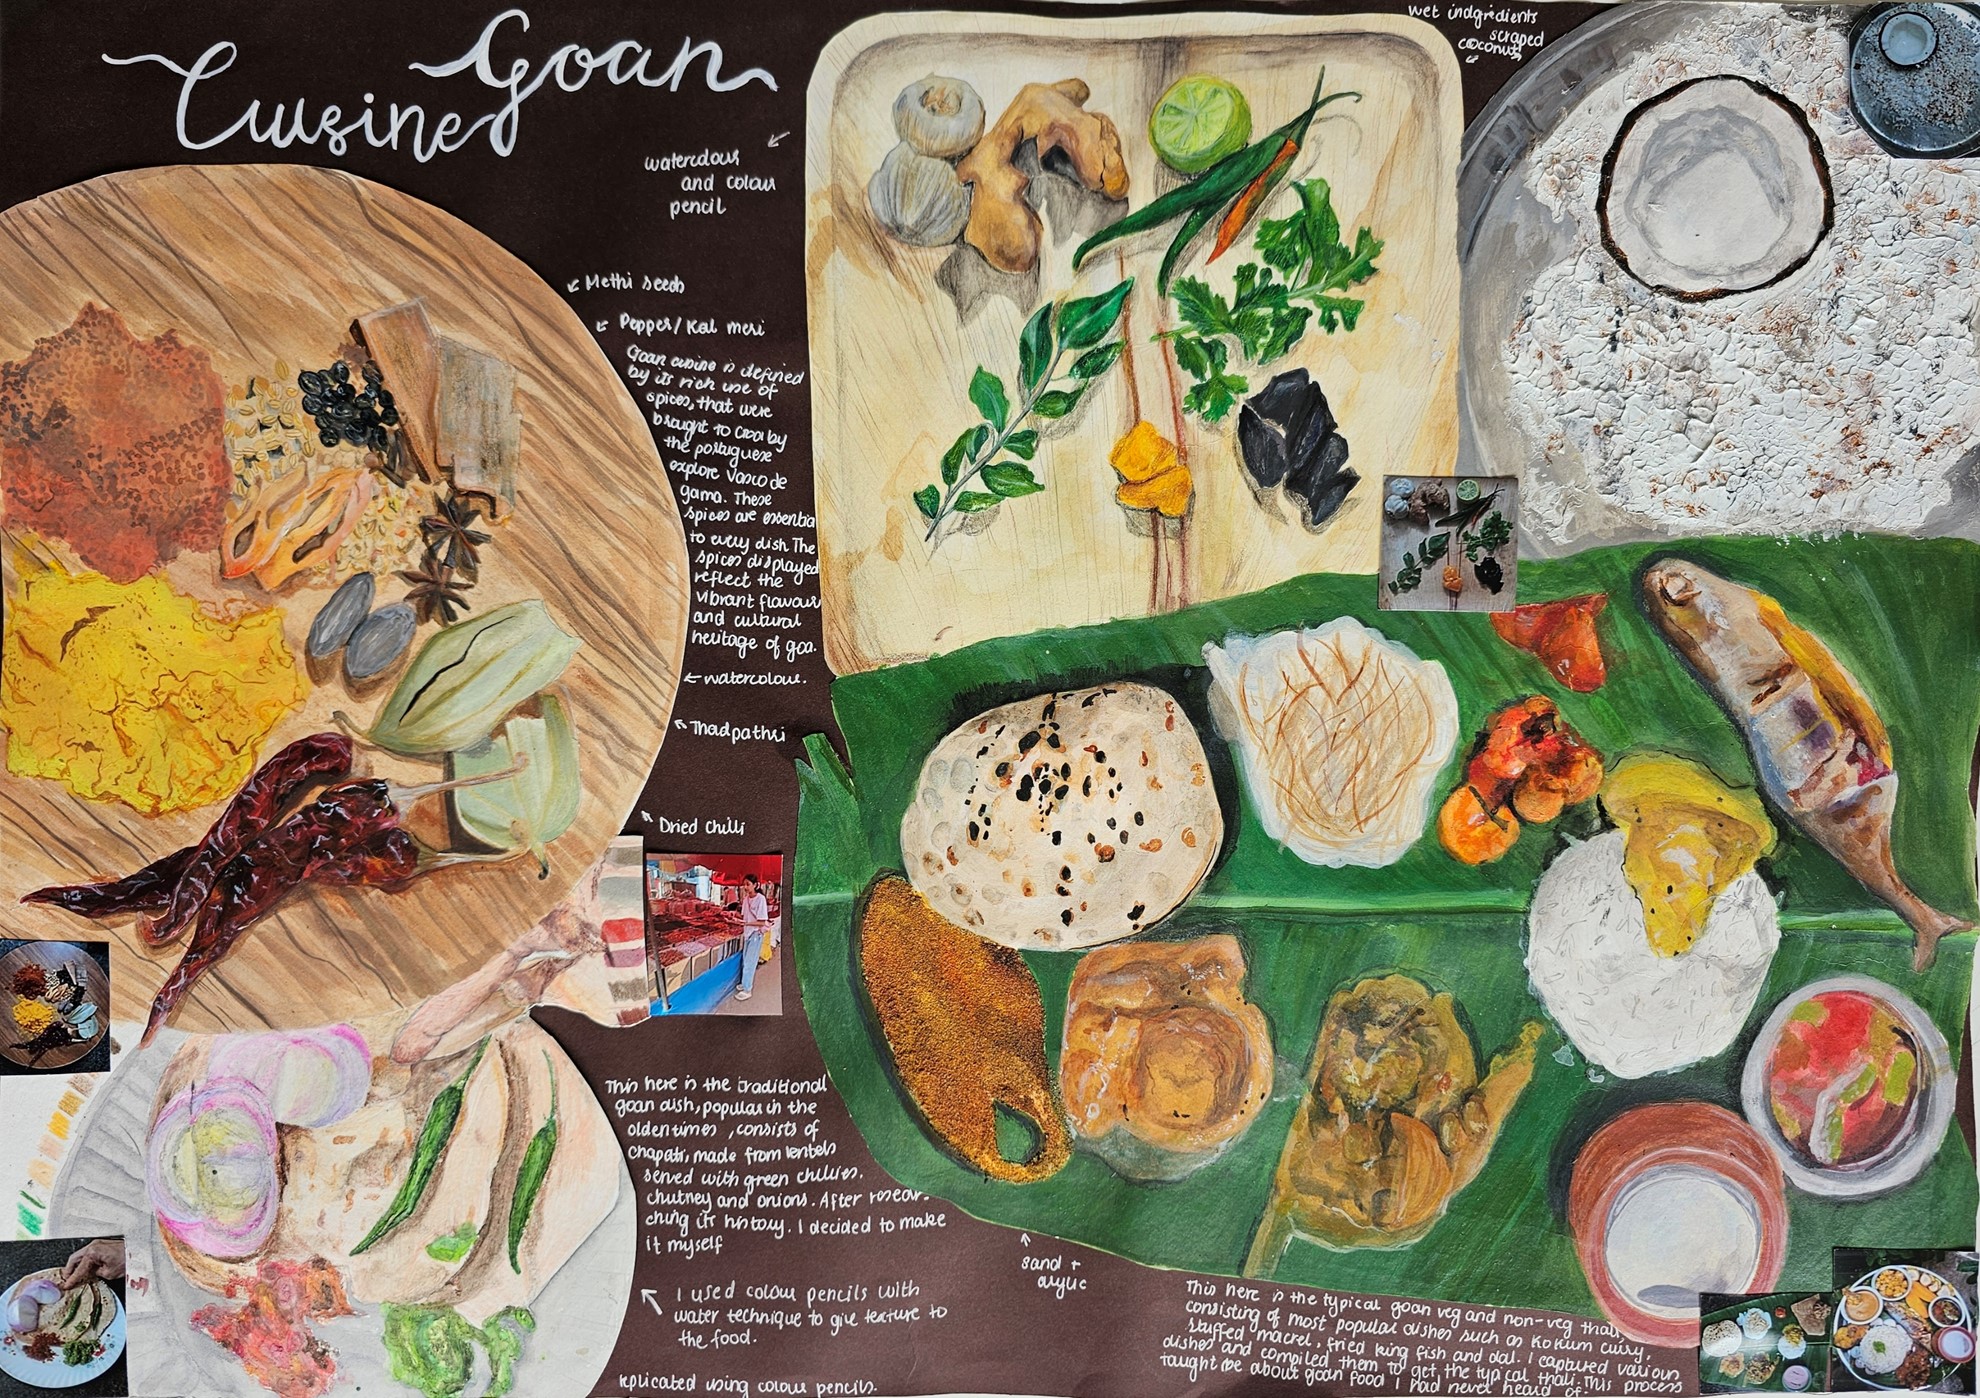 Goan
Cuisine
watercolour
and colour
pencil
wet indgridients
scraped
coconuts
Methi seeds
Pepper/ Kal meri
Goan cuisine is defined
by its rich use of
spices, that were
brought to Goa by
the portuguese
explore Vasco de
gama. These
spices are essential
to every dish. The
spices displayed
reflect the
vibrant flavours
and cultural
heritage of goa.
watercolour.
Thadpathri
Dried chilli
This here is the traditional
goan dish, popular in the
olden times, consists of
chapati, made from lentels
served with green chillies.
chutney and onions. After resear-
ching its history. I decided to make
it myself
I used colour pencils with
water technique to give texture to
the food.
replicated using colour pencils.
sand +
This here is the typical goan veg and non-veg thali,
consisting of most popular dishes such as Kokum curry,
stuffed macrel, fried king fish and dal. I captured various
dishes and compiled them to get the typical thali. This process
taught me about goan food I had never heard of.